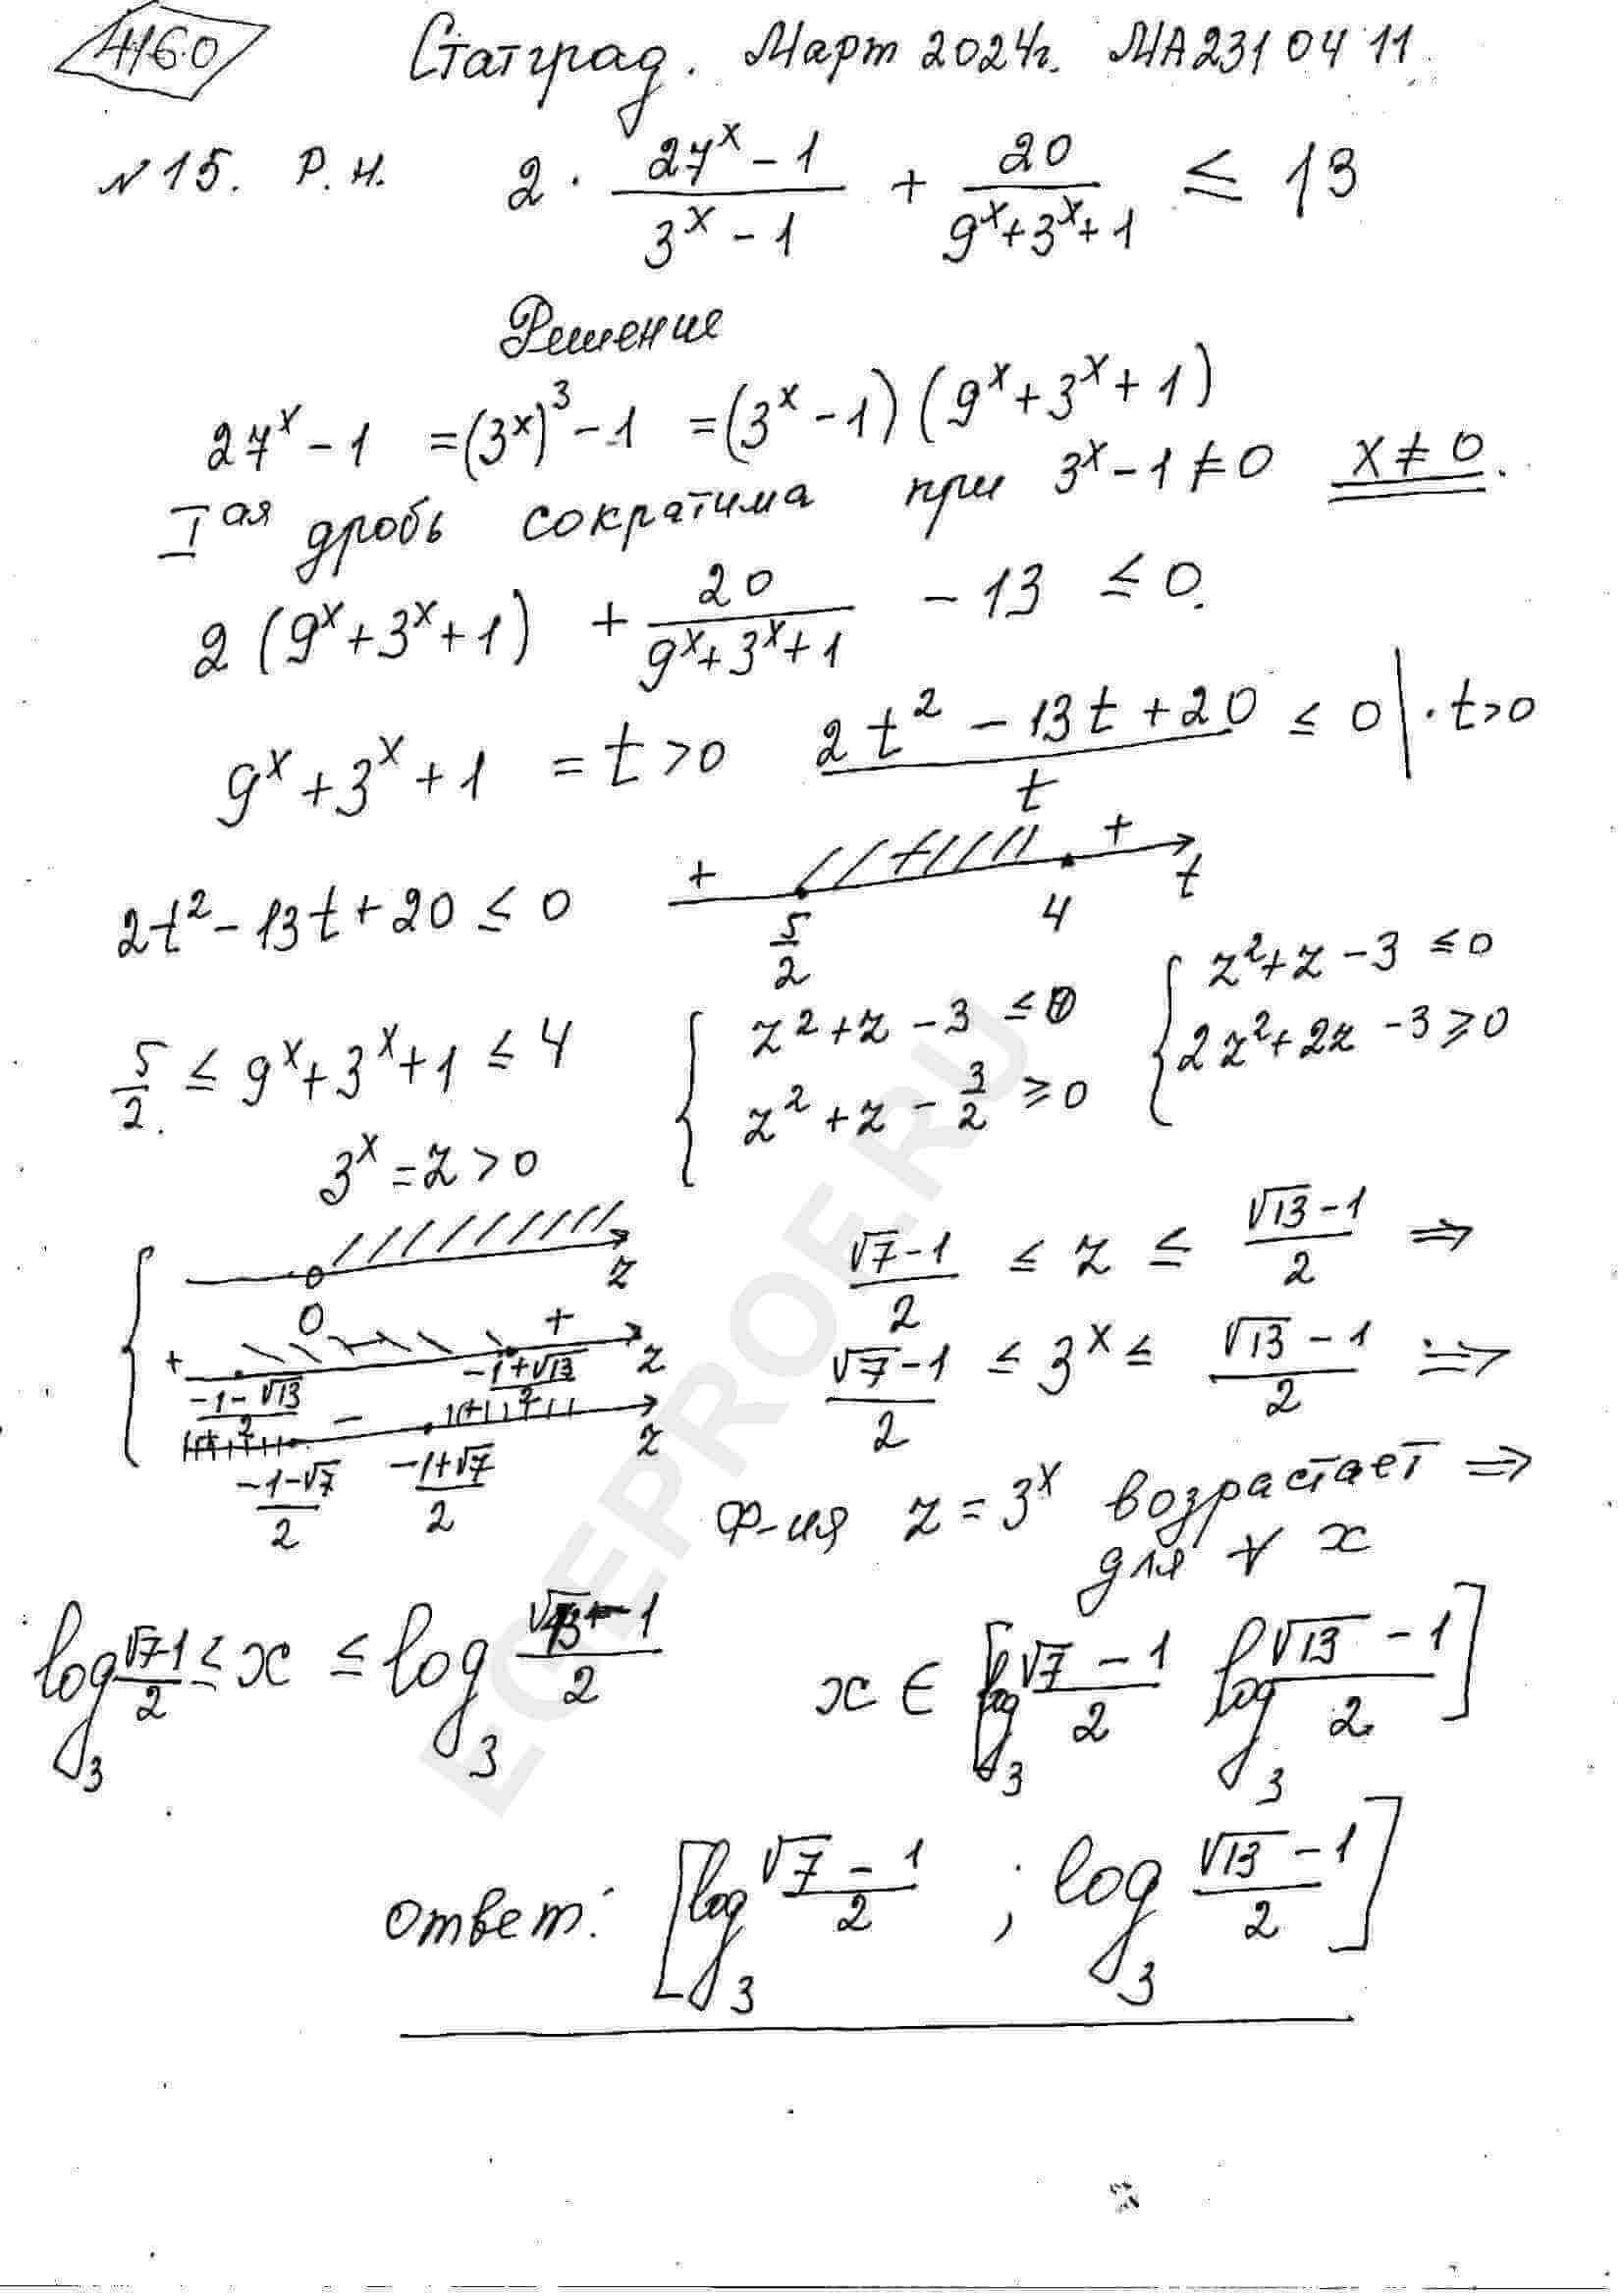 4160
Статград. Март 2024г. МА2310411.
№15. Р.Н. 2 · (27^x - 1)/(3^x - 1) + 20/(9^x + 3^x + 1) ≤ 13
Решение
27^x - 1 = (3^x)^3 - 1 = (3^x - 1)(9^x + 3^x + 1)
I ая дробь сократима при 3^x - 1 ≠ 0 x ≠ 0.
2(9^x + 3^x + 1) + 20/(9^x + 3^x + 1) - 13 ≤ 0.
9^x + 3^x + 1 = t > 0 (2t^2 - 13t + 20)/t ≤ 0 | · t>0
2t^2 - 13t + 20 ≤ 0 + + t
5/2 4
5/2 ≤ 9^x + 3^x + 1 ≤ 4 { z^2 + z - 3 ≤ 0 { z^2 + z - 3 ≤ 0
z^2 + z - 3/2 ≥ 0 2z^2 + 2z - 3 ≥ 0
3^x = z > 0
{ 0 z
+ - + z
(-1-√13)/2 (-1+√13)/2
+ - + z
(-1-√7)/2 (-1+√7)/2
(√7-1)/2 ≤ z ≤ (√13-1)/2 ⇒
(√7-1)/2 ≤ 3^x ≤ (√13-1)/2 ⇒
Ф-ия z = 3^x возрастает ⇒
для ∀ x
log_3 (√7-1)/2 ≤ x ≤ log_3 (√13-1)/2 x ∈ [log_3 (√7-1)/2 log_3 (√13-1)/2]
ответ: [log_3 (√7-1)/2 ; log_3 (√13-1)/2]
EGEPROE.RU